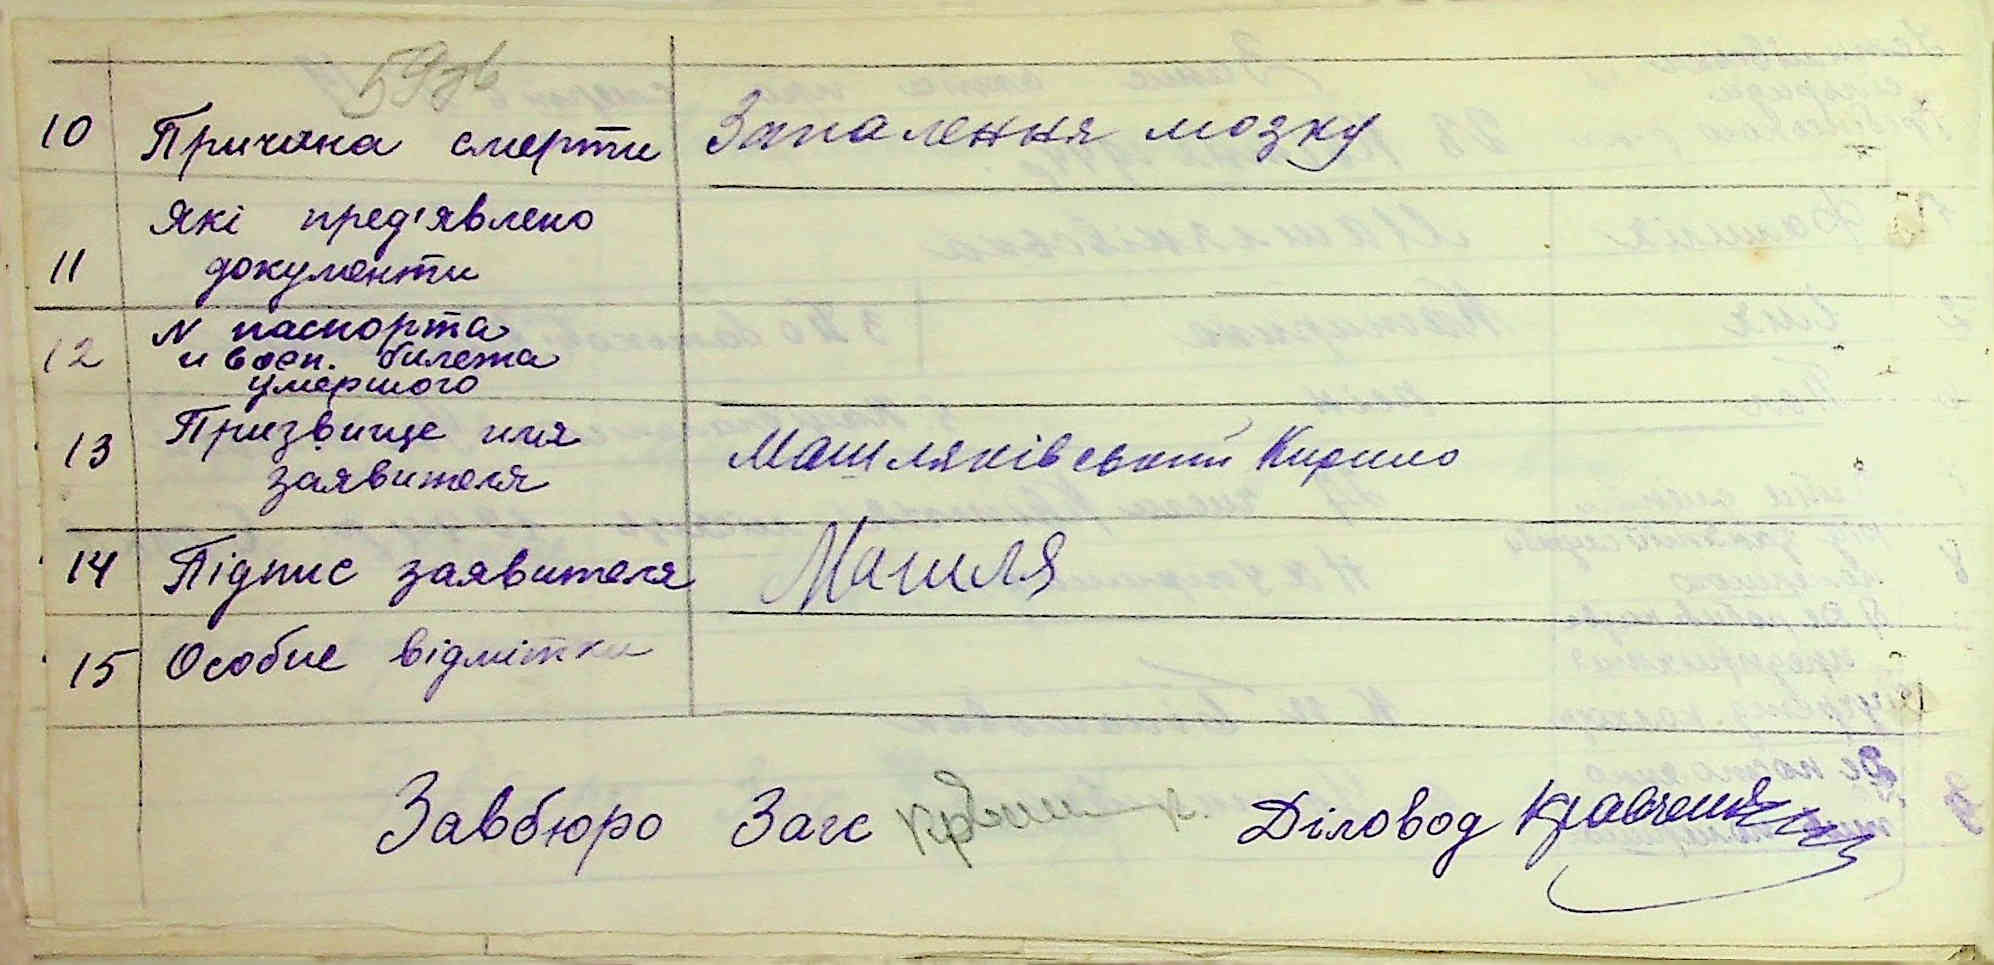 59зв
10 Причина смерти Запалення мозку
Які пред'явлено
11 документи
N паспорта
12 и воен. билета
умершого
Призвище имя
13 заявителя Машляківський Кирило
14 Підпис заявителя Машля
15 Особие відмітки
Завбюро Загс Діловод Кравченя